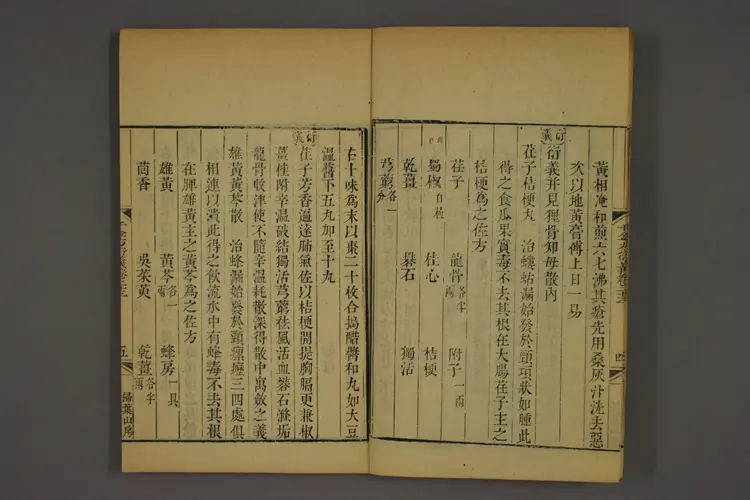 黃相淹和煎六七沸其瘡先用桑灰汁洗去惡
次以地黃膏傅上日一易
衍義
衍義并見狸骨知毋散內
荏子桔梗丸 治螻蛄漏始發於頸項狀如腫此
得之食瓜果實毒不去其根在大腸荏子主之
桔梗為之佐方
荏子 龍骨各半兩 附子一兩
蜀椒 桂心 桔梗
乾薑 礜石 獨活
芎藭各一分
四
右十味為末以棗二十枚合搗醋醬和丸如大豆
溫醬下五丸加至十九
衍義
荏子芳香通達肺氣佐以桔梗開提胸膈更兼椒
薑桂附辛溫破結獨活芎藭祛風活血礜石滌垢
龍骨收津使不隨辛溫耗散深得散中寓斂之義
雄黃黃芩散 治蜂漏始發於頸瘰癧三四處俱
相連以潰此得之飲流水中有蜂毒不去其根
在脾雄黃主之黃芩為之佐方
雄黃 黃芩各一兩 蜂房一具
茴香 吳茱萸 乾薑各半兩
五
掃葉山房